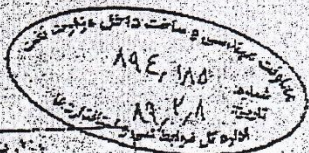 معاونت مهندسی و ساخت داخل وزارت نفت
شماره ۸۹۴,۱۸۵
تاریخ ۸۹,۲,۸
اداره کل